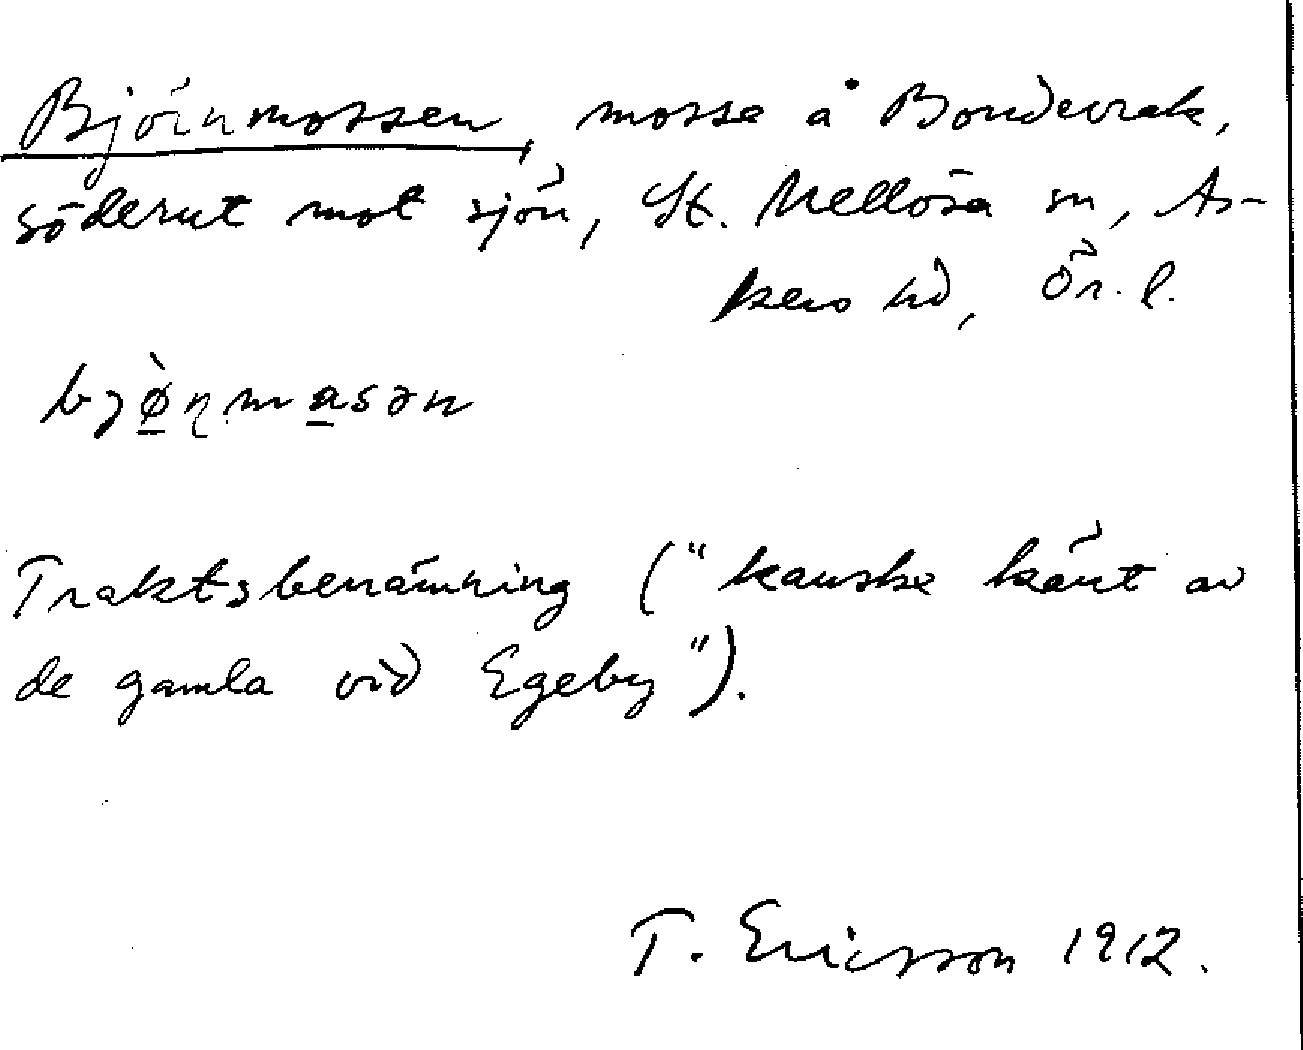 Björnmossen, mosse å Bondevrak,
söderut mot sjön, St. Mellösa sn, As-
kers hd, Ör. l.
bjø̀ɳmasən
Traktsbenämning ("kanske känt av
de gamla vid Egeby").
T. Ericsson 1912.